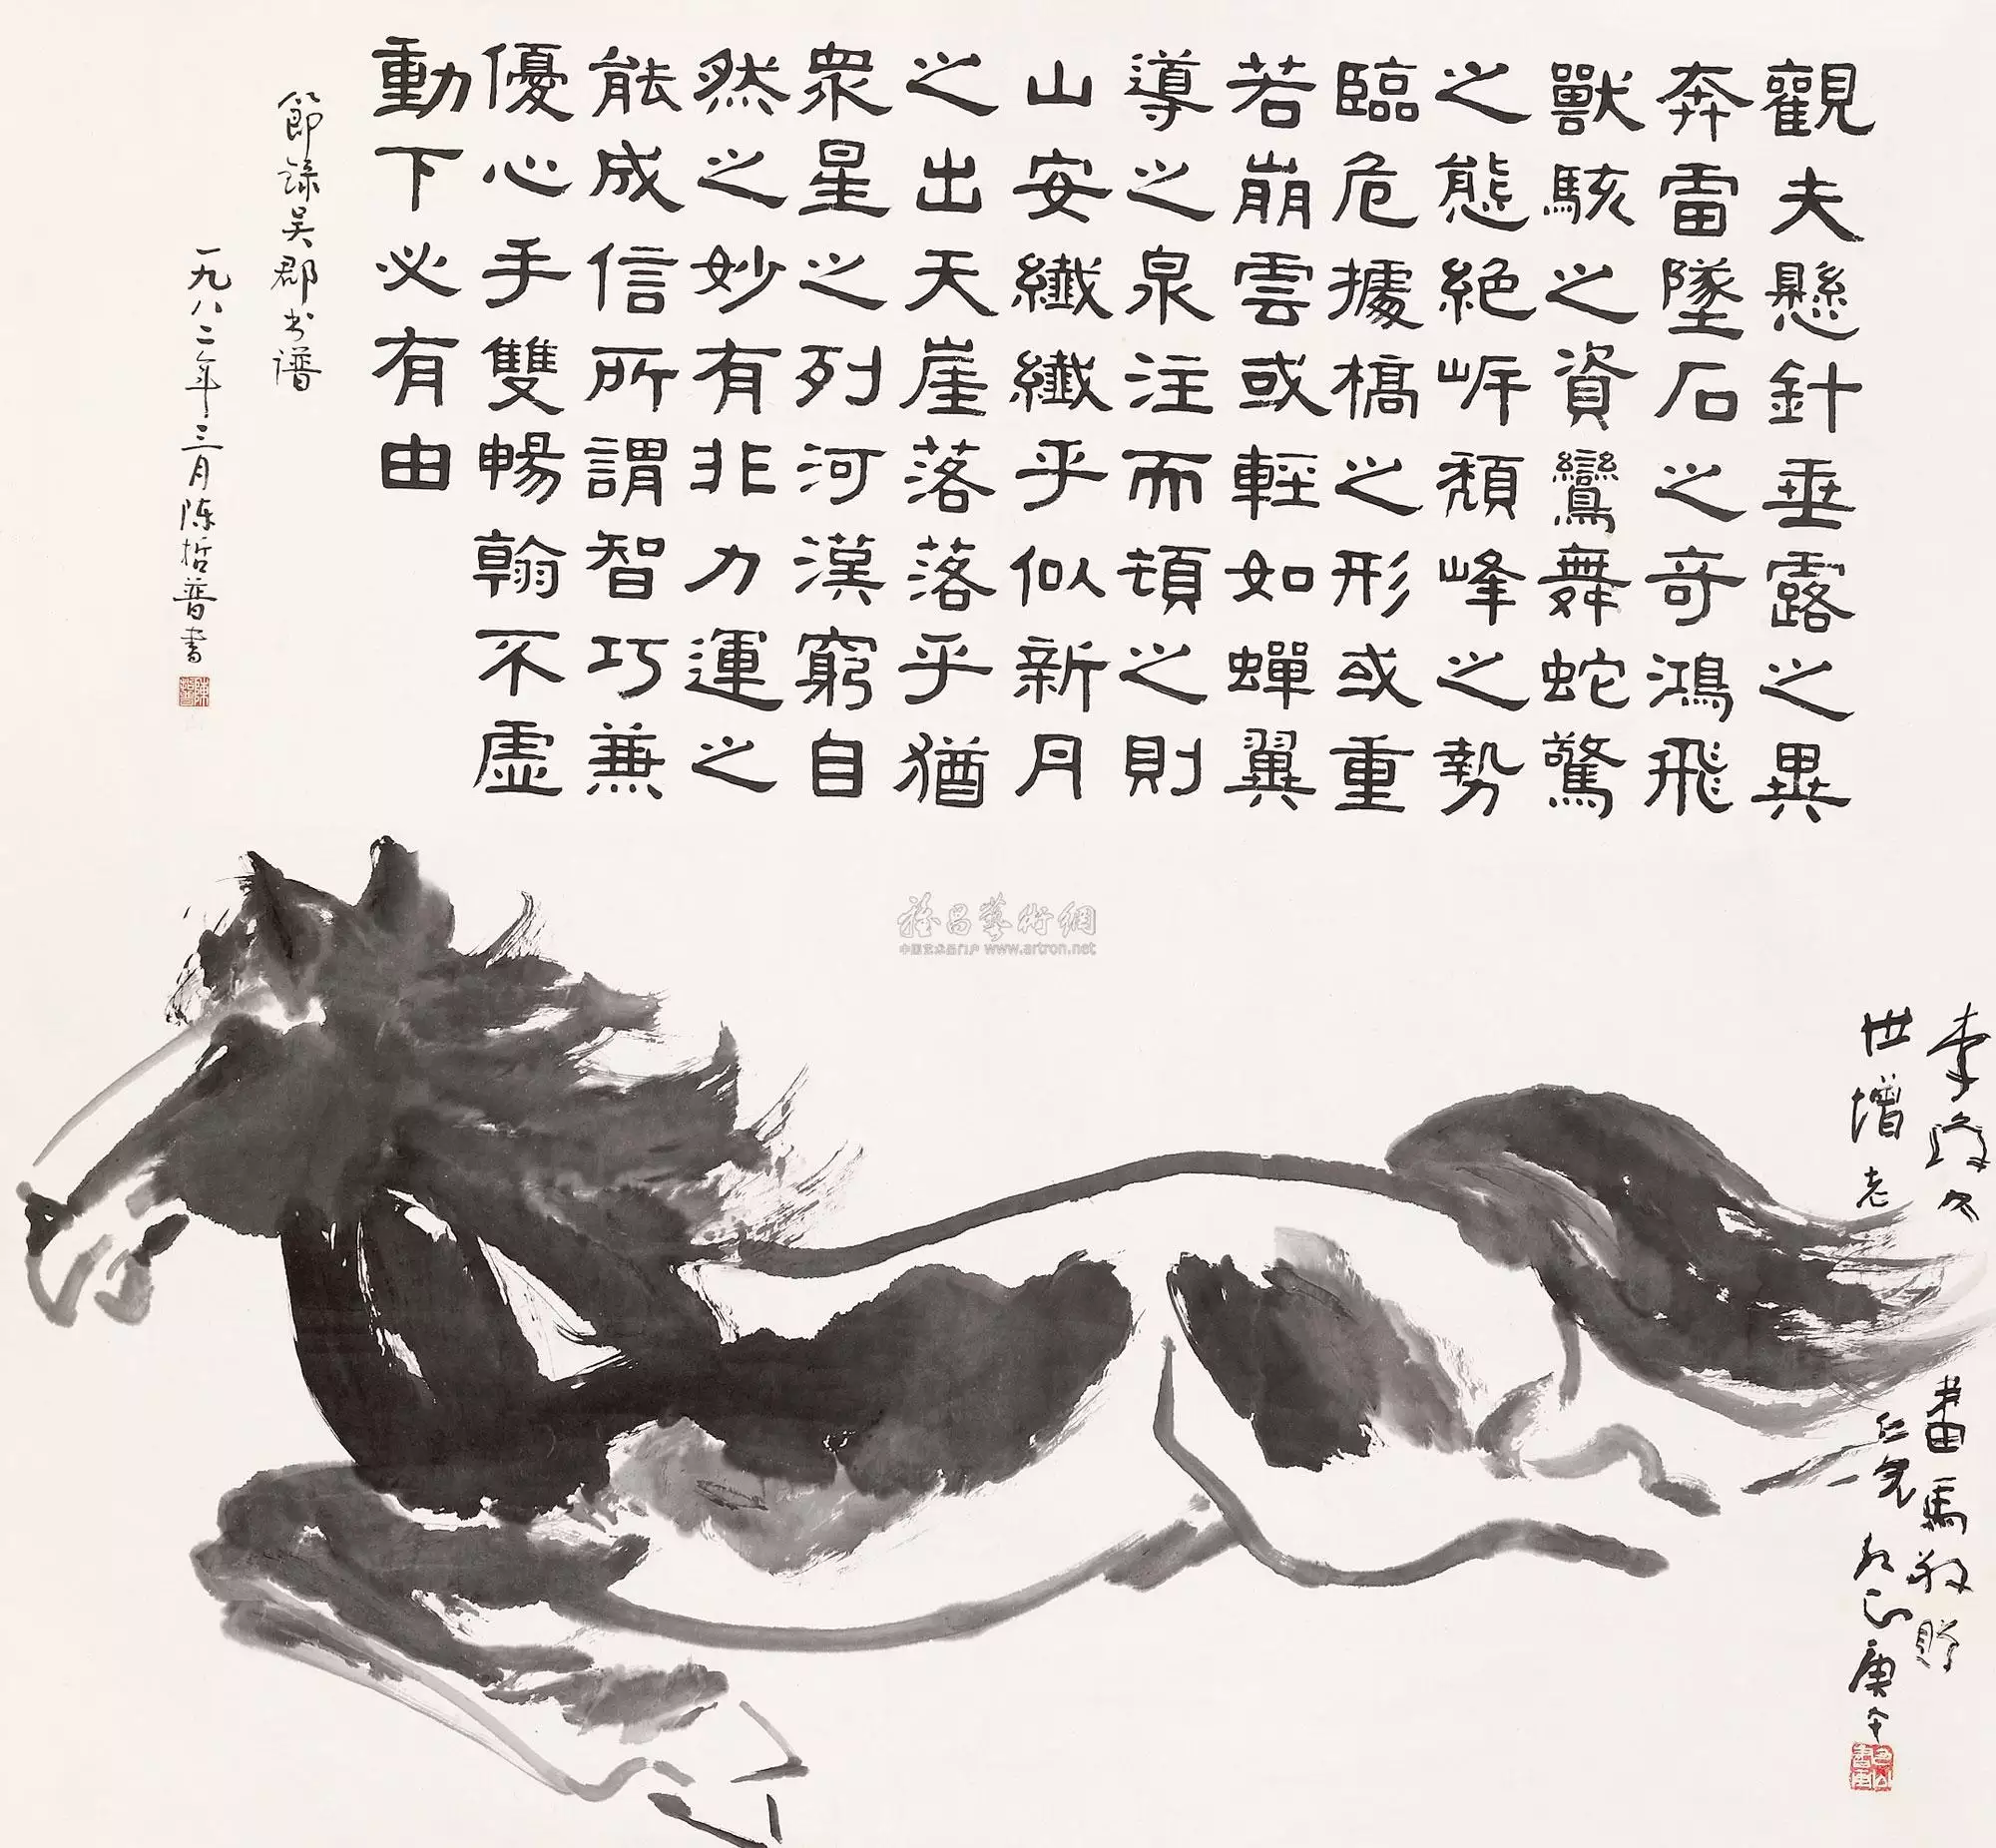 觀夫懸針垂露之異
奔雷墜石之奇鴻飛
獸駭之資鸞舞蛇驚
之態絕岸頹峰之勢
臨危據槁之形或重
若崩雲或輕如蟬翼
導之泉注而頓之則
山安纖纖乎似新月
之出天崖落落乎猶
眾星之列河漢窮自
然之妙有非力運之
能成信所謂智巧兼
優心手雙暢翰不虛
動下必有由
節錄吴郡书谱
一九八二年三月陈哲普書
畫馬敬贈
世增老
仁兄
正庚午
雅昌藝術網
中国艺术品门户 www.artron.net